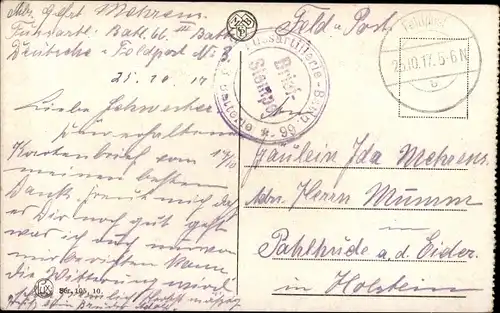 Abs. Gefrt. Mehrens.
Fußartl. Batl. 66 III Batt.
Deutsche Feldpost No 3.
25. 10. 17
Liebe Schwester
erhaltenen
Kartenbrief vom 17/10
meinen besten
Dank. freut mich daß
es Dir noch gut geht
was ich auch von
mir berichten kann.
Die Witterung wird
Ser. 105. 10.
Feld-Post
Feldpost
25.10.17. 5-6 N
Fussartillerie-Batl. 66
Brief
Stempel
Fräulein Ida Mehrens
Adr. Herrn Mumm
Pahlhude a. d. Eider.
in Holstein